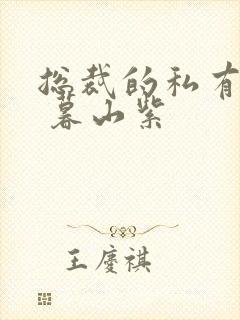 总裁的私有
暮山紫
王庆祺